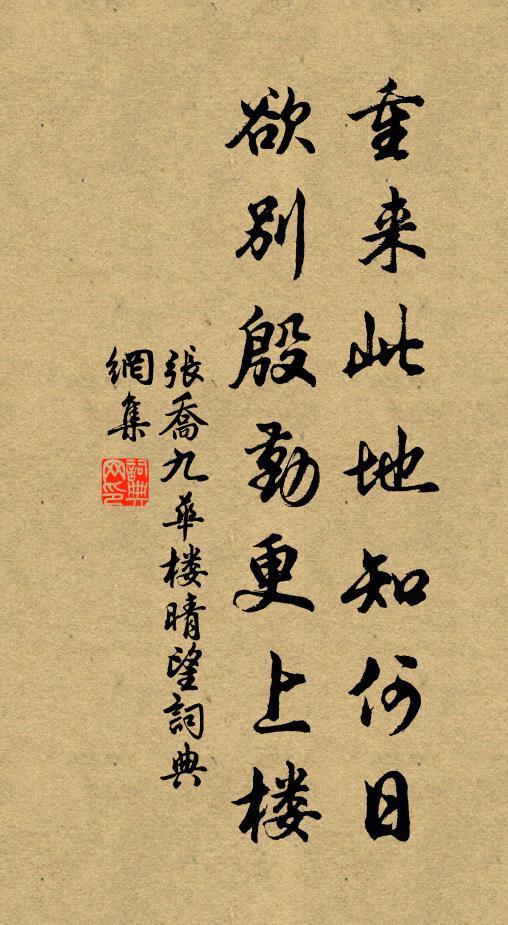 重来此地知何日
欲别殷勤更上楼
張喬九華楼晴望詞典
網集
詞典
网印